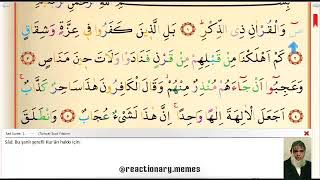 صٓ وَالْقُرْاٰنِ ذِي الذِّكْرِۜ بَلِ الَّذٖينَ كَفَرُوا فٖي عِزَّةٍ وَشِقَاقٍ
كَمْ اَهْلَكْنَا مِنْ قَبْلِهِمْ مِنْ قَرْنٍ فَنَادَوْا وَلَاتَ حٖينَ مَنَاصٍ
وَعَجِبُٓوا اَنْ جَٓاءَهُمْ مُنْذِرٌ مِنْهُمْۘ وَقَالَ الْكَافِرُونَ هٰذَا سَاحِرٌ كَذَّابٌۚ
اَجَعَلَ الْاٰلِهَةَ اِلٰهًا وَاحِدًاۚ اِنَّ هٰذَا لَشَيْءٌ عُجَابٌ وَانْطَلَقَ
Sâd. Bu şanlı şerefli Kur'ân hakkı için
@reactionary.memes